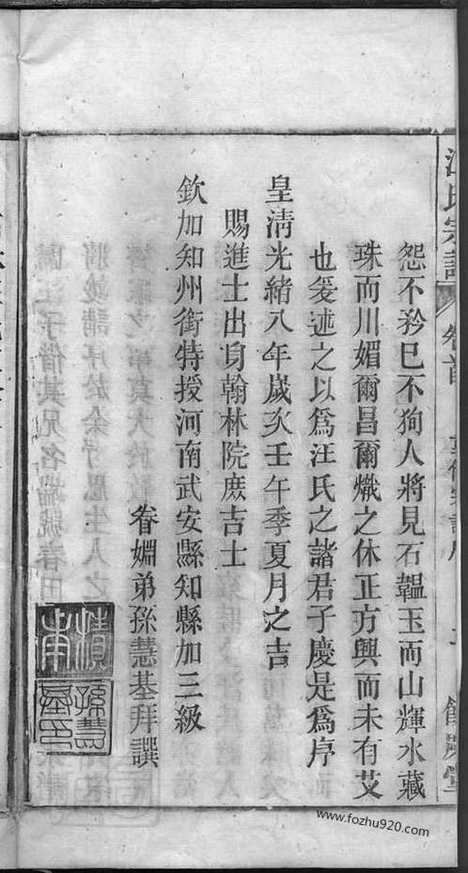 汪氏宗譜
卷首
怨不矜已不狥人將見石韞玉而山輝水藏
珠而川媚爾昌爾熾之休正方興而未有艾
也爰述之以爲汪氏之諸君子慶是爲序
皇清光緒八年歲次壬午季夏月之吉
賜進士出身翰林院庶吉士
欽加知州銜特授河南武安縣知縣加三級
眷婣弟孫慧基拜譔
積甫
孫慧基印
www.fozhu920.com